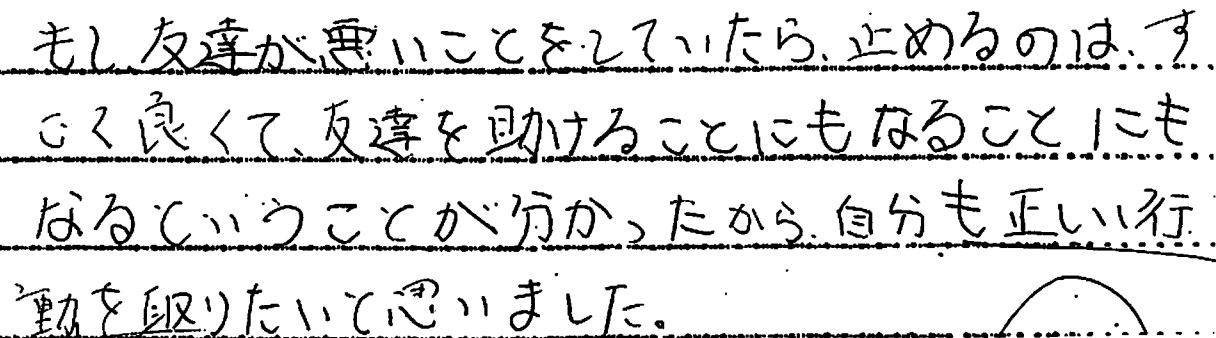 もし、友達が悪いことをしていたら、止めるのは、す
ごく良くて、友達を助けることにもなることにも
なるということが分かったから、自分も正しい行
動を取りたいと思いました。